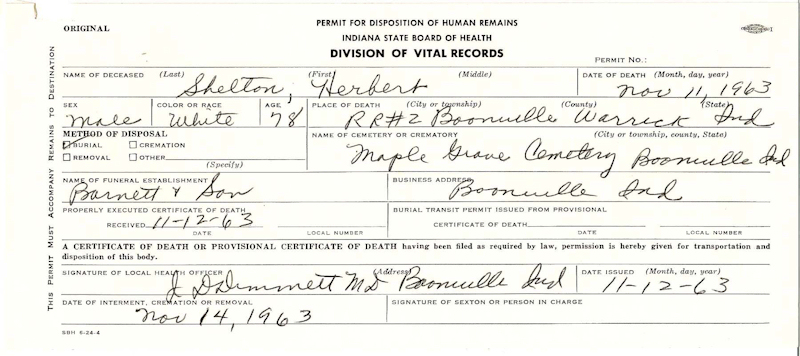 ORIGINAL
PERMIT FOR DISPOSITION OF HUMAN REMAINS
INDIANA STATE BOARD OF HEALTH
DIVISION OF VITAL RECORDS
PERMIT NO.:
THIS PERMIT MUST ACCOMPANY REMAINS TO DESTINATION
NAME OF DECEASED (Last) (First) (Middle) DATE OF DEATH (Month, day, year)
Shelton, Herbert Nov 11, 1963
SEX COLOR OR RACE AGE PLACE OF DEATH (City or township) (County) (State)
Male White 78 RR#2 Boonville Warrick Ind
METHOD OF DISPOSAL NAME OF CEMETERY OR CREMATORY (City or township, county, State)
BURIAL CREMATION
REMOVAL OTHER
(Specify)
Maple Grove Cemetery Boonville Ind
NAME OF FUNERAL ESTABLISHMENT BUSINESS ADDRESS
Barnett & Son Boonville Ind
PROPERLY EXECUTED CERTIFICATE OF DEATH BURIAL TRANSIT PERMIT ISSUED FROM PROVISIONAL
RECEIVED 11-12-63 CERTIFICATE OF DEATH
DATE LOCAL NUMBER DATE LOCAL NUMBER
A CERTIFICATE OF DEATH OR PROVISIONAL CERTIFICATE OF DEATH having been filed as required by law, permission is hereby given for transportation and
disposition of this body.
SIGNATURE OF LOCAL HEALTH OFFICER (Address) DATE ISSUED (Month, day, year)
MD Boonville Ind 11-12-63
DATE OF INTERMENT, CREMATION OR REMOVAL SIGNATURE OF SEXTON OR PERSON IN CHARGE
Nov 14, 1963
SBH 6-24-4